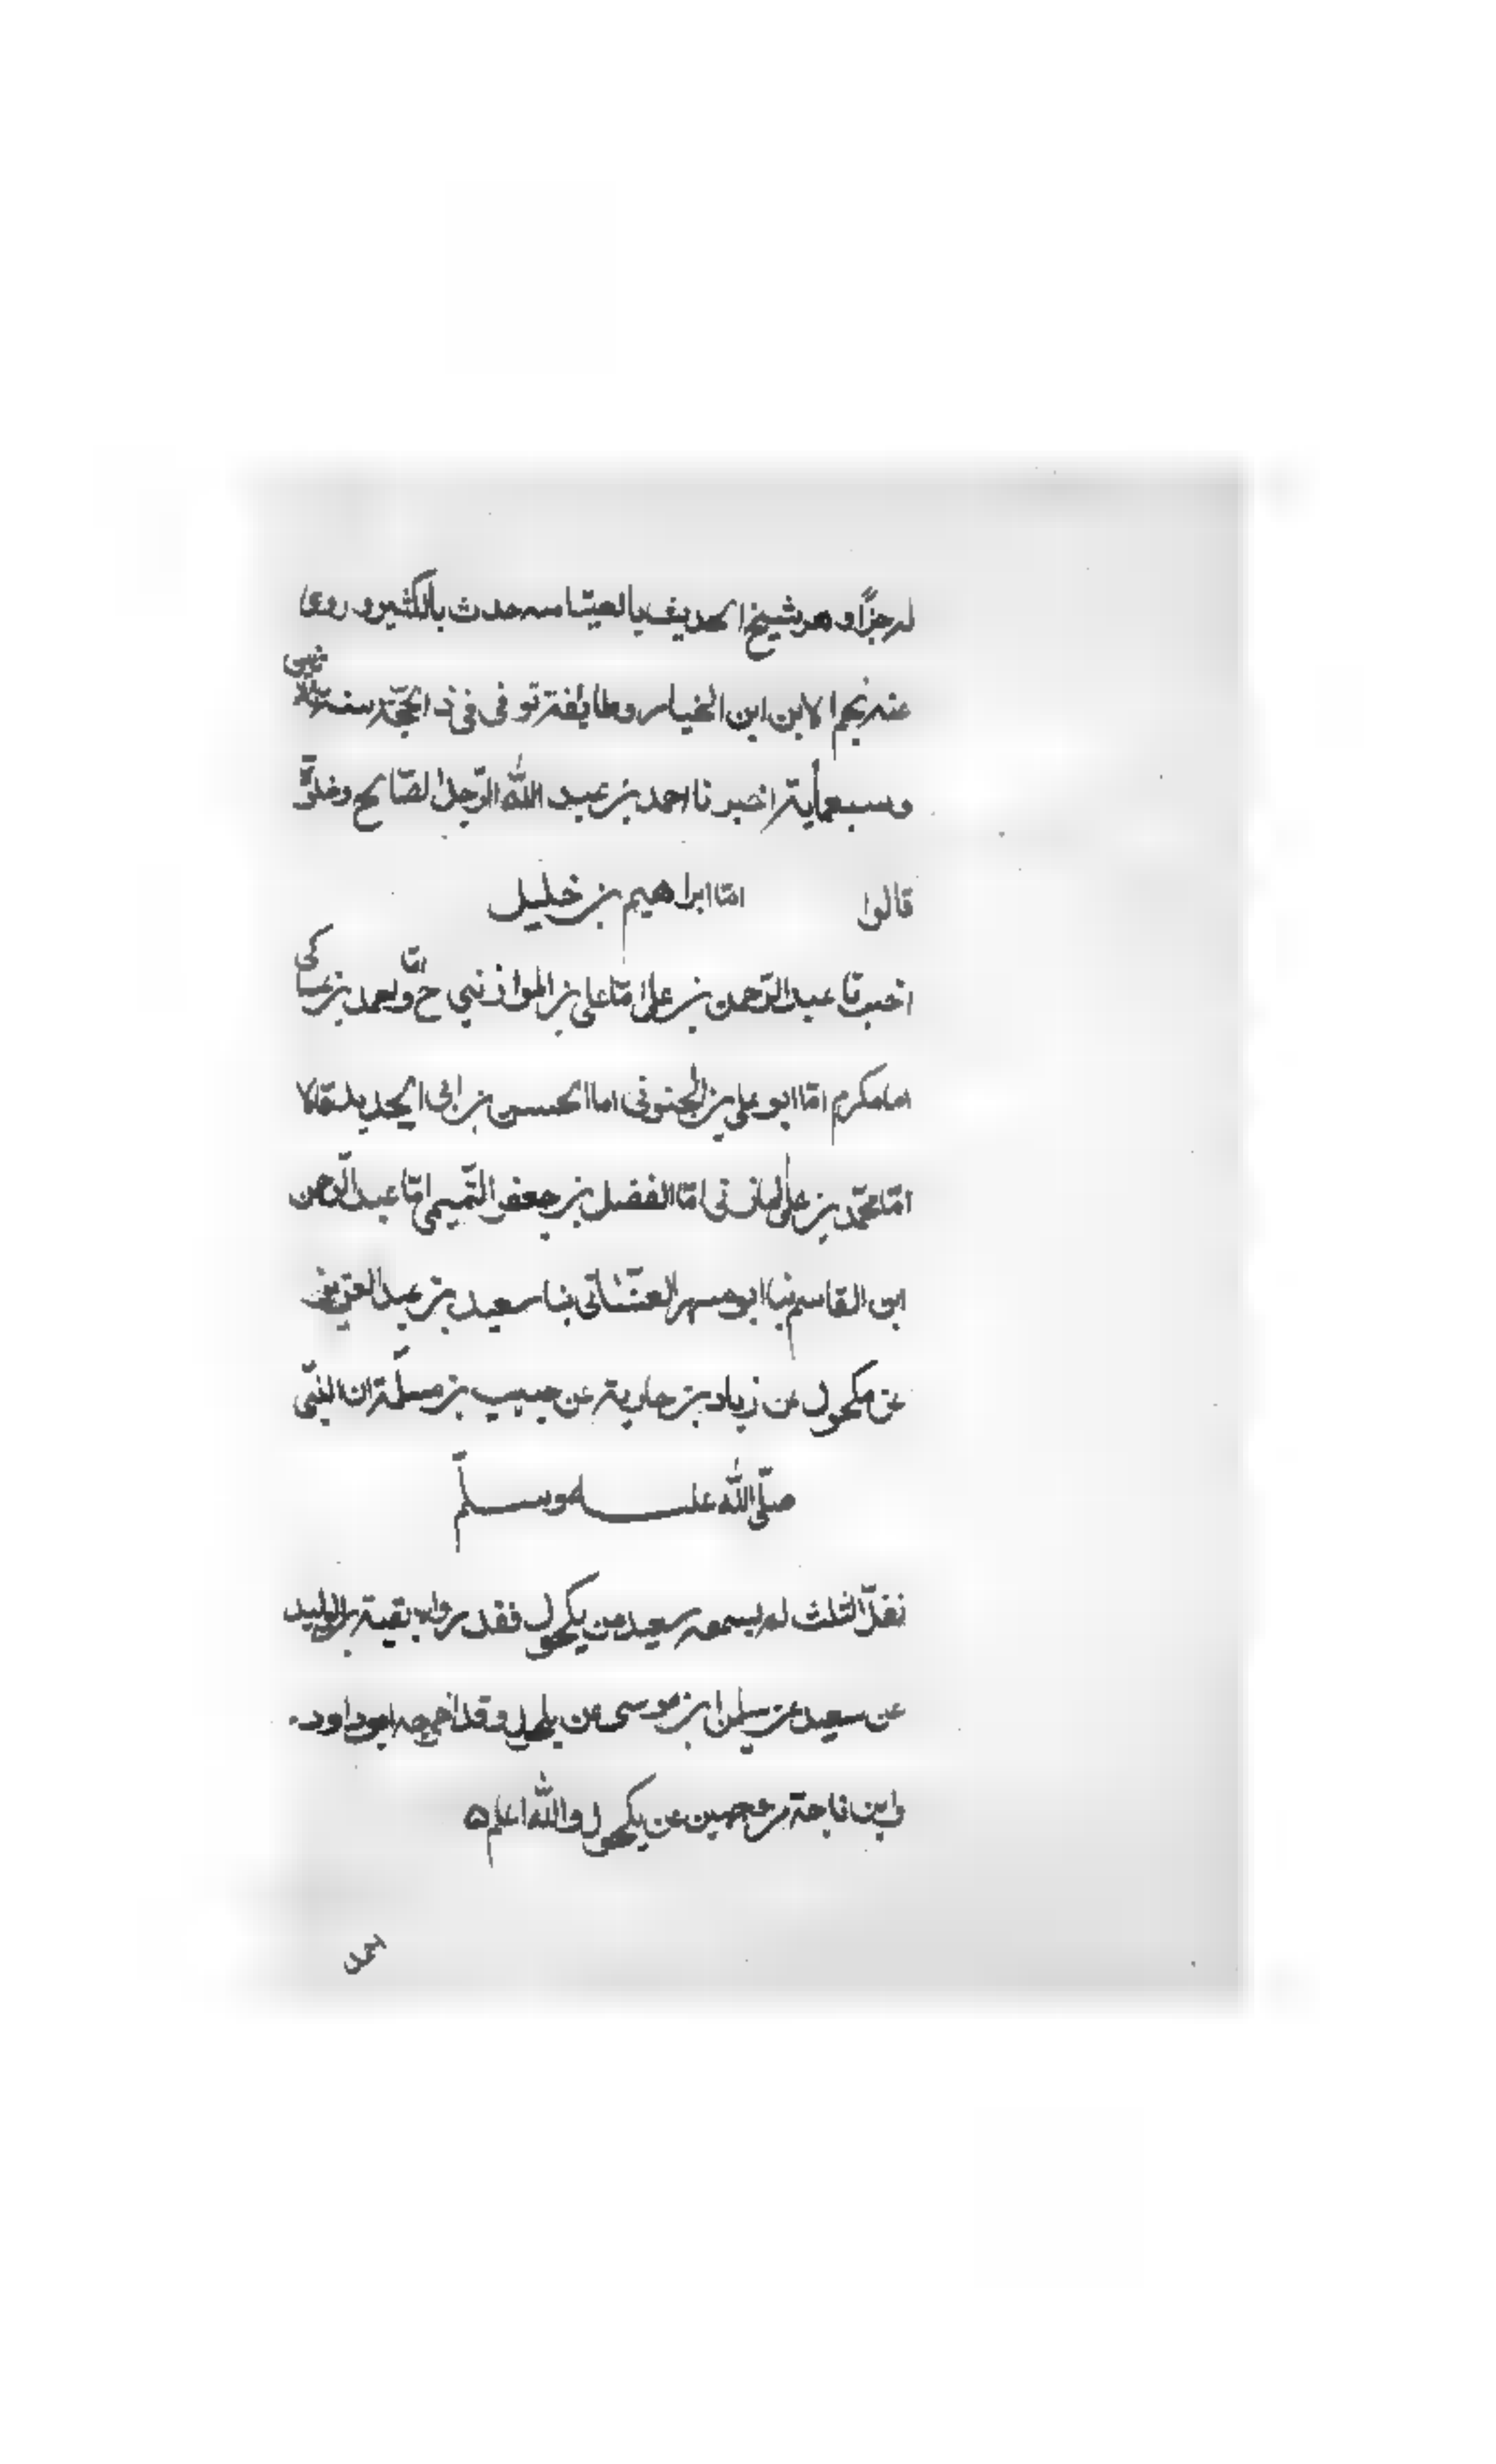 له جزأ وهو شيخ الحديث بالضيائيه حدث بالكثير وروى
عنه نجم الابن ابن الخباز وطائفة توفى فى ذى الحجة سنة
وسبعماية اخبرنا احمد بن عبد الله الرجل الصالح وخلق
قالوا انا ابراهيم بن خليل
اخبرنا عبد الرحمن بن على انا على بن الموازنبى ح وانا احمد بن
انا مكرم انا ابو على بن انا الحسن بن ابى الحديد قالا
انا محمد بن على المازنى انا الفضل بن جعفر التميمى انا عبد الرحمن
ابن القاسم ثنا ابو مسهر الغسانى ثنا سعيد بن عبد العزيز
عن مكحول عن زياد بن جارية عن حبيب بن مسلمة ان النبى
صلى الله عليه وسلم
نفل الثلث لم يسمعه سعيد من مكحول فقد رواه بقية بن الوليد
عن سعيد عن سليمن ابن موسى عن مكحول وقد اخرجه ابو داود
وابن ماجة من عن مكحول والله اعلم ۵
احمد